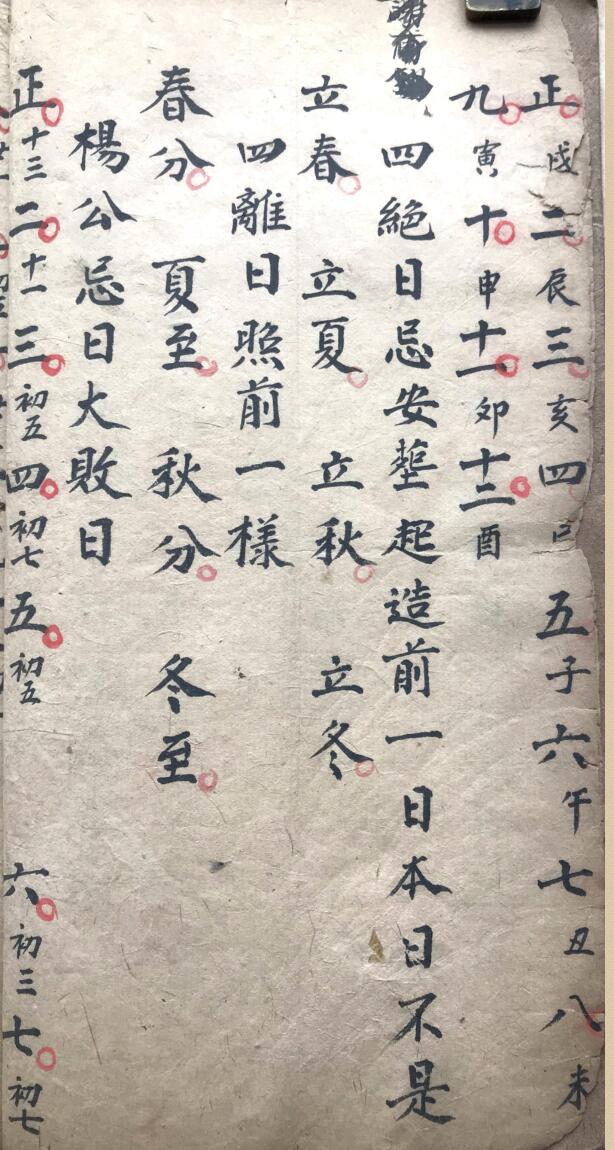 正戌二辰三亥四巳五子六午七丑八未
九寅十申十一卯十二酉
四絶日忌安塟起造前一日本日不是
立春 立夏 立秋 立冬
四離日照前一樣
春分 夏至 秋分 冬至
楊公忌日大敗日
正十三二十一三初五四初七五初五六初三七初七